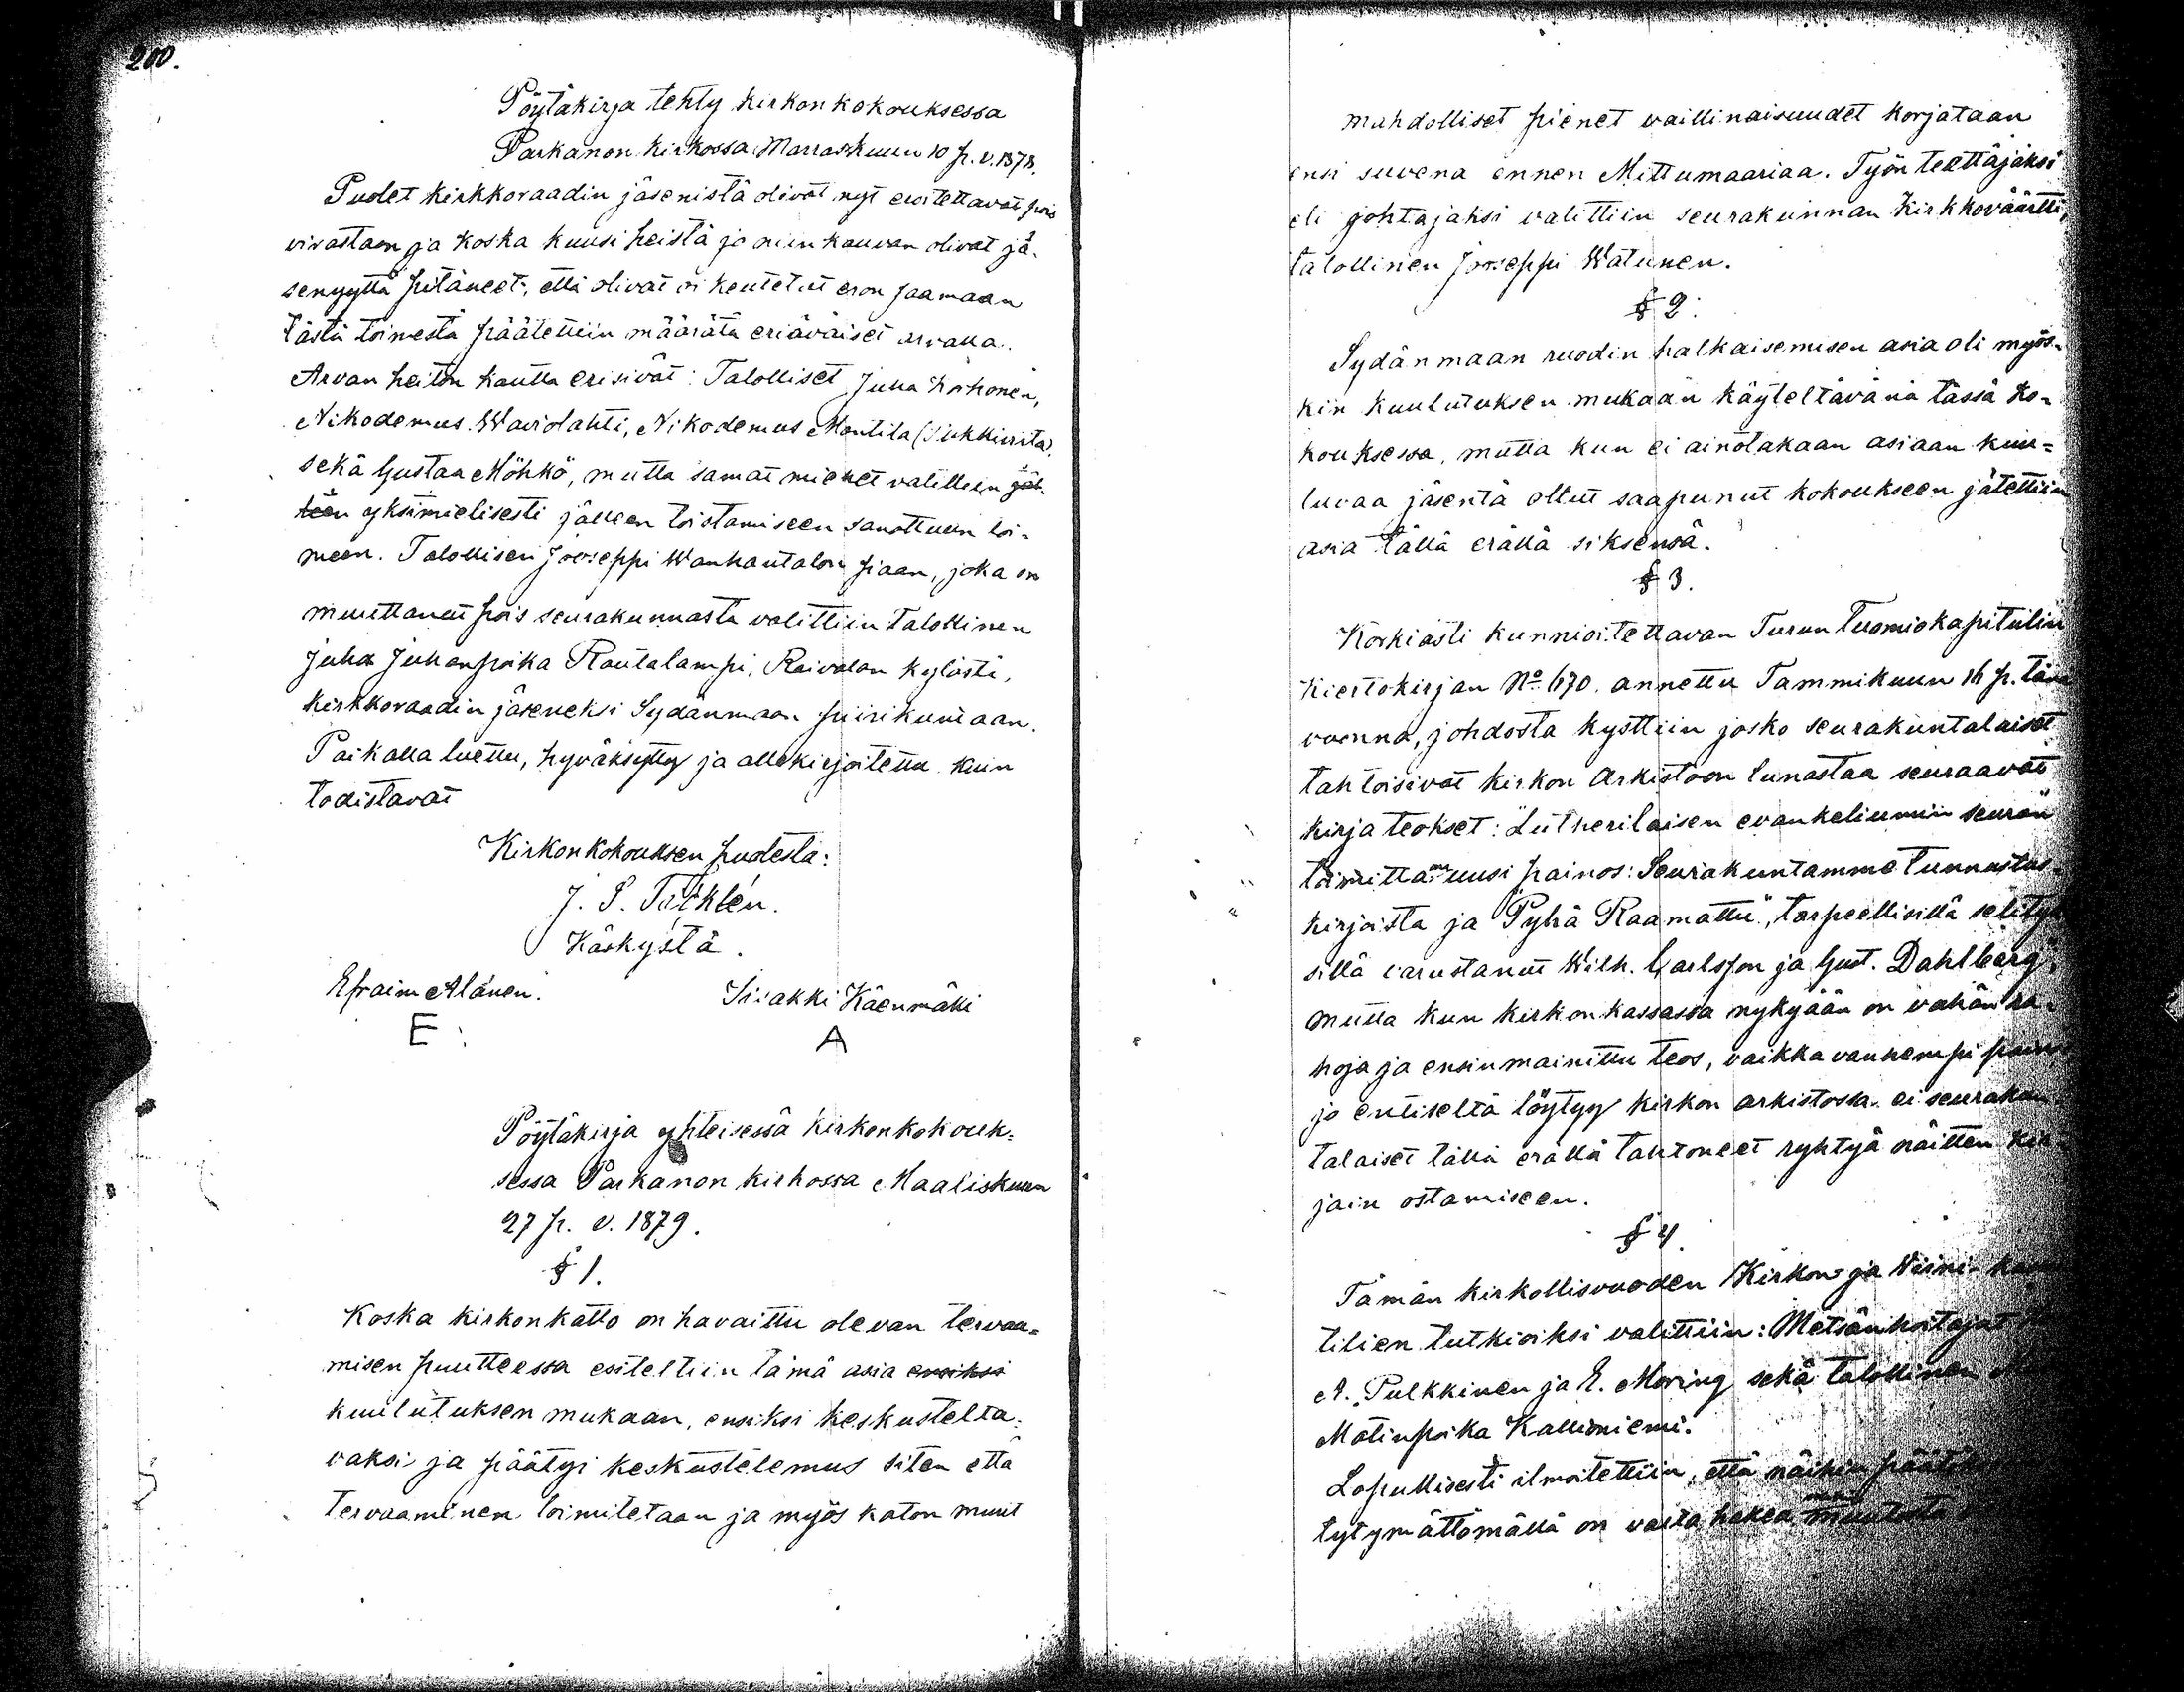 200.
Pöytäkirja tehty kirkonkokouksessa
Parkanon kirkossa Marraskuun 10 p. v. 1878.
Puolet kirkkoraadin jäsenistä olivat nyt eroitettavat pois
virastaan ja koska kuusi heistä jo niin kauvan olivat jä-
senyyttä pitäneet, että olivat oikeutetut eron saamaan
tästä toimesta päätettiin määrätä eriäväiset arvalla.
Arvan heiton kautta erisivät: Talolliset Juha
Nikodemus Wuorolahti, Nikodemus Mantila
sekä Gustaa Möhkö, mutta samat miehet valittiin jäl-
leen yksimielisesti jälleen toistamiseen sanottuun toi-
meen. Talollisen Jooseppi Wanhantalon siaan, joka on
muuttanut pois seurakunnasta valittiin talollinen
Juha Juhanpoika Rautalampi, Raivalan kylästä,
kirkkoraadin jäseneksi Sydänmaan piirikuntaan.
Paikalla luettu, hyväksytty ja allekirjoitettu kuin
todistavat
Kirkonkokouksen puolesta:
J. P. Täcklén.
Käskystä.
Efraim Alanen. Iisakki Käenmäki
E A
Pöytäkirja yhteisessä kirkonkokouk-
sessa Parkanon kirkossa Maaliskuun
27 p. v. 1879.
§ 1.
Koska kirkonkatto on havaittu olevan tervaa-
misen puutteessa esiteltiin tämä asia ensiksi
kuulutuksen mukaan, ensiksi keskustelta-
vaksi ja päätyi keskustelemus siten että
tervaaminen toimitetaan ja myös katon muut
mahdolliset pienet vaillinaisuudet korjataan
ensi suvena ennen Mittumaariaa. Työn teettäjäksi
eli johtajaksi valittiin seurakunnan Kirkkoväärtti,
talollinen Jooseppi Watunen.
§ 2.
Sydänmaan ruodin halkaisemisen asia oli myös-
kin kuulutuksen mukaan käyteltävänä tässä ko-
kouksessa, mutta kun ei ainotakaan asiaan kuu-
luvaa jäsentä ollut saapunut kokoukseen jätettiin
asia tällä erällä siksensä.
§ 3.
Korkiasti kunnioitettavan Turun Tuomiokapitulin
Kiertokirjan No 670. annettu Tammikuun 16 p. tänä
vuonna, johdosta kysttiin josko seurakuntalaiset
tahtoisivat kirkon Arkistoon lunastaa seuraavat
kirja teokset: "Lutherilaisen evankeliumin seuran"
toimittama uusi painos: Seurakuntamme Tunnustus-
kirjoista ja "Pyhä Raamattu", tarpeellisillä selityk
sillä varustanut Wilh. Carlsson ja Gust. Dahlberg",
mutta kun kirkonkassassa nykyään on vähän ra-
hoja ja ensinmainittu teos, vaikka vanhempi painos
jo entiseltä löytyy kirkon arkistossa ei seurakun
talaiset tällä erällä tahtoneet ryhtyä näitten kir
jain ostamiseen.
§ 4.
Tämän kirkollisvuoden Kirkon- ja Wiini-
tilien tutkioiksi valittiin: Metsänhoitajat
A. Pulkkinen ja E. Moring sekä talollinen
Matinpoika Kallioniemi.
Lopullisesti ilmoitettiin, että näihin
tytymättömällä on valta hakea muutosta